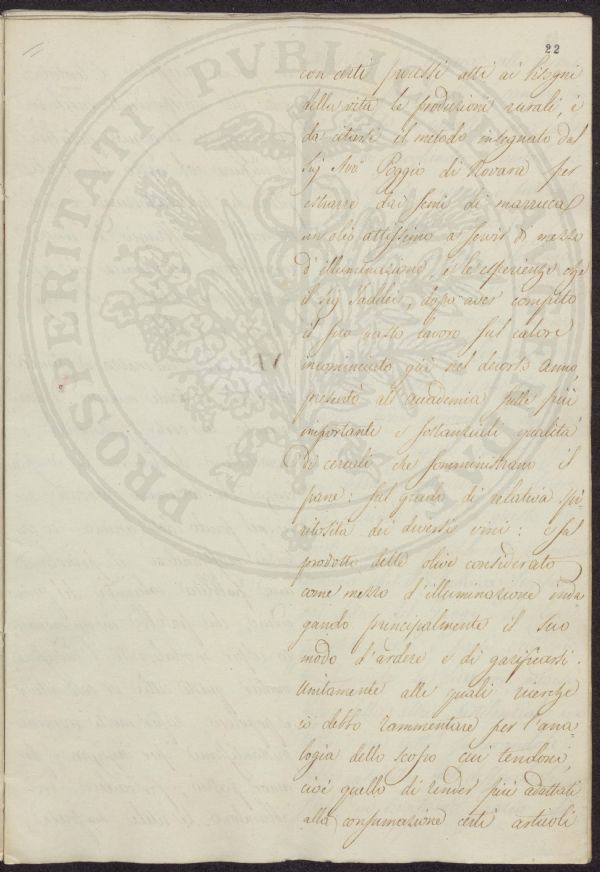 22
con certi processi atti ai bisogni
della vita le produzioni rurali, è
da citarsi il metodo insegnato dal
Sig Avv Poggio di Novara per
estrarre dai semi di marruca
un olio attissimo a servir di mezzo
d'illuminazione, e le esperienze che
il Sig Taddei, dopo aver compito
il suo vasto lavoro sul calore
incominciato già nel decorso Anno,
presentò all'Accademia sulle più
importanti e sostanziali qualità
di cereali che somministrano il
pane: sul grado di relativa spi-
ritosità dei diversi vini: e sul
prodotto delle olive considerato
come mezzo d'illuminazione inda
gando principalmente il suo
modo d'ardere e di gasificarsi.
Unitamente alle quali ricerche
io debbo rammentare per l'ana-
logia dello scopo cui tendono,
cioè quello di render più adattati
alla consumazione certi articoli
PROSPERITATI PVBLICAE